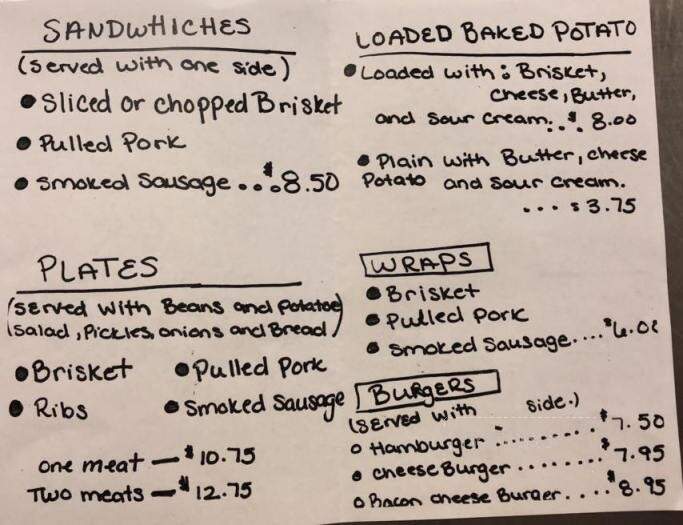 SANDWHICHES
(served with one side)
• Sliced or chopped Brisket
• Pulled Pork
• Smoked Sausage...$8.50
LOADED BAKED POTATO
• Loaded with: Brisket,
cheese, Butter,
and Sour Cream...$8.00
• Plain with Butter, cheese
Potato and sour cream.
...$3.75
PLATES
(served with Beans and Potatoe
Salad, Pickles, onions and Bread)
• Brisket • Pulled Pork
• Ribs • Smoked Sausage
one meat — $10.75
Two meats — $12.75
WRAPS
• Brisket
• Pulled Pork
• Smoked Sausage....$6.00
BURGERS
(served with side.)
• Hamburger ..........$7.50
• cheese Burger ........$7.95
• Bacon cheese Burger....$8.95